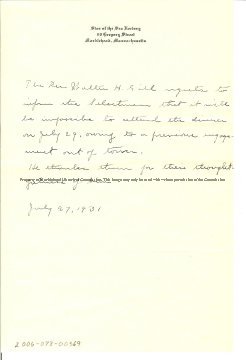 Star of the Sea Rectory
80 Gregory Street
Marblehead, Massachusetts
The Rev Walter H. Gill regrets to
inform the Selectmen that it will
be impossible to attend the dinner
on July 29, owing to a previous engage-
ment out of town.
He thanks them for their thought-
July 27, 1931
2006-078-00369